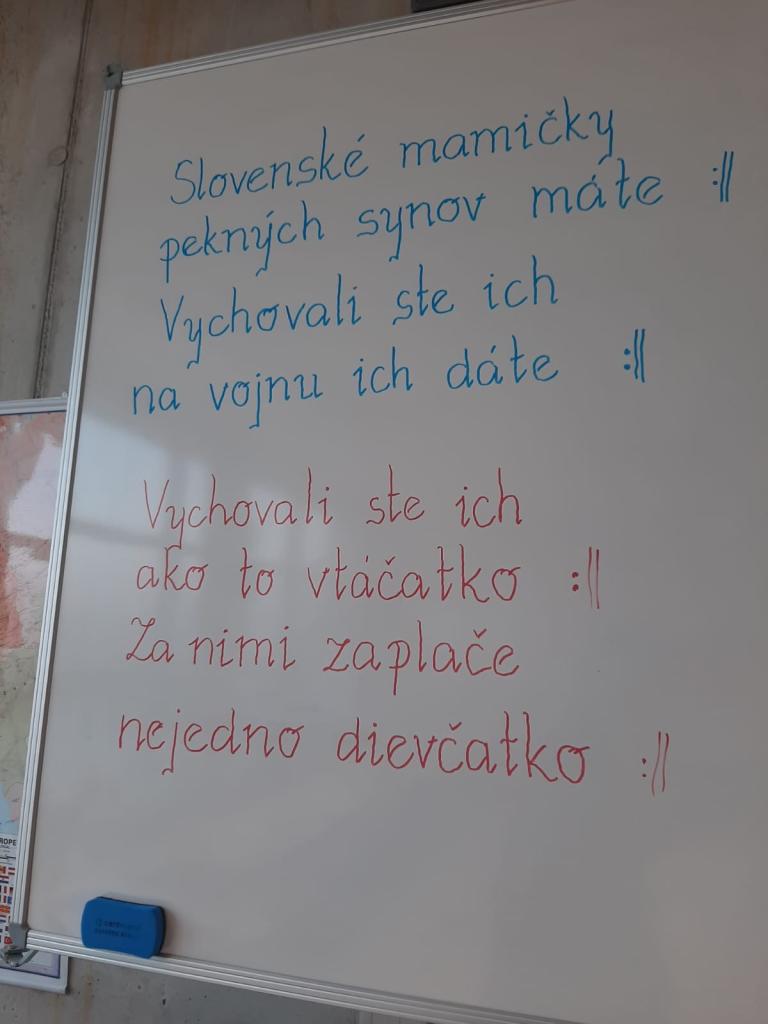 Slovenské mamičky
pekných synov máte :||
Vychovali ste ich
na vojnu ich dáte :||
Vychovali ste ich
ako to vtáčatko :||
Za nimi zaplače
nejedno dievčatko :||